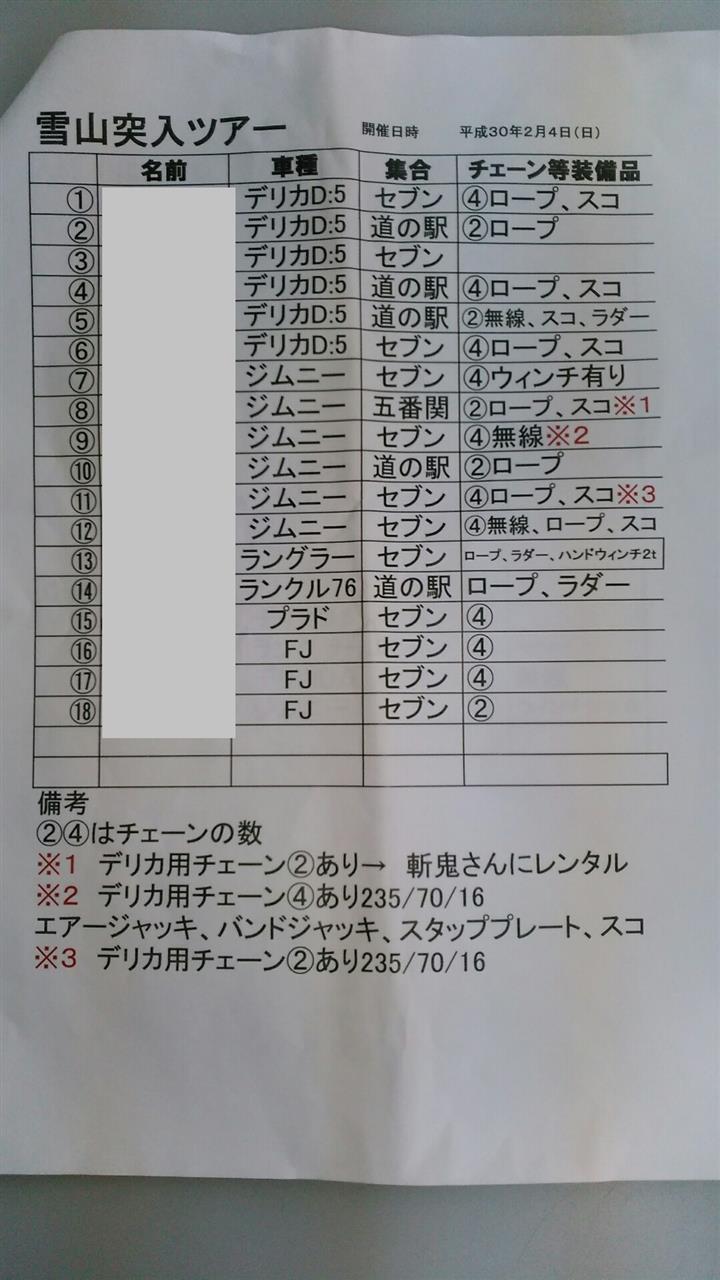 雪山突入ツアー 開催日時 平成30年2月4日(日)
名前 車種 集合 チェーン等装備品
① デリカD:5 セブン ④ロープ、スコ
② デリカD:5 道の駅 ②ロープ
③ デリカD:5 セブン
④ デリカD:5 道の駅 ④ロープ、スコ
⑤ デリカD:5 道の駅 ②無線、スコ、ラダー
⑥ デリカD:5 セブン ④ロープ、スコ
⑦ ジムニー セブン ④ウィンチ有り
⑧ ジムニー 五番関 ②ロープ、スコ※1
⑨ ジムニー セブン ④無線※2
⑩ ジムニー 道の駅 ②ロープ
⑪ ジムニー セブン ④ロープ、スコ※3
⑫ ジムニー セブン ④無線、ロープ、スコ
⑬ ラングラー セブン ロープ、ラダー、ハンドウィンチ2t
⑭ ランクル76 道の駅 ロープ、ラダー
⑮ プラド セブン ④
⑯ FJ セブン ④
⑰ FJ セブン ④
⑱ FJ セブン ②
備考
②④はチェーンの数
※1 デリカ用チェーン②あり→ 斬鬼さんにレンタル
※2 デリカ用チェーン④あり235/70/16
エアージャッキ、バンドジャッキ、スタッププレート、スコ
※3 デリカ用チェーン②あり235/70/16